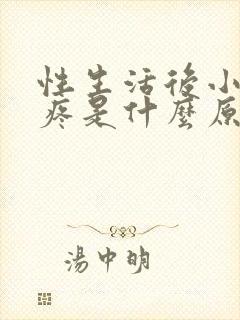 性生活後小
疼是什麼原
湯中明